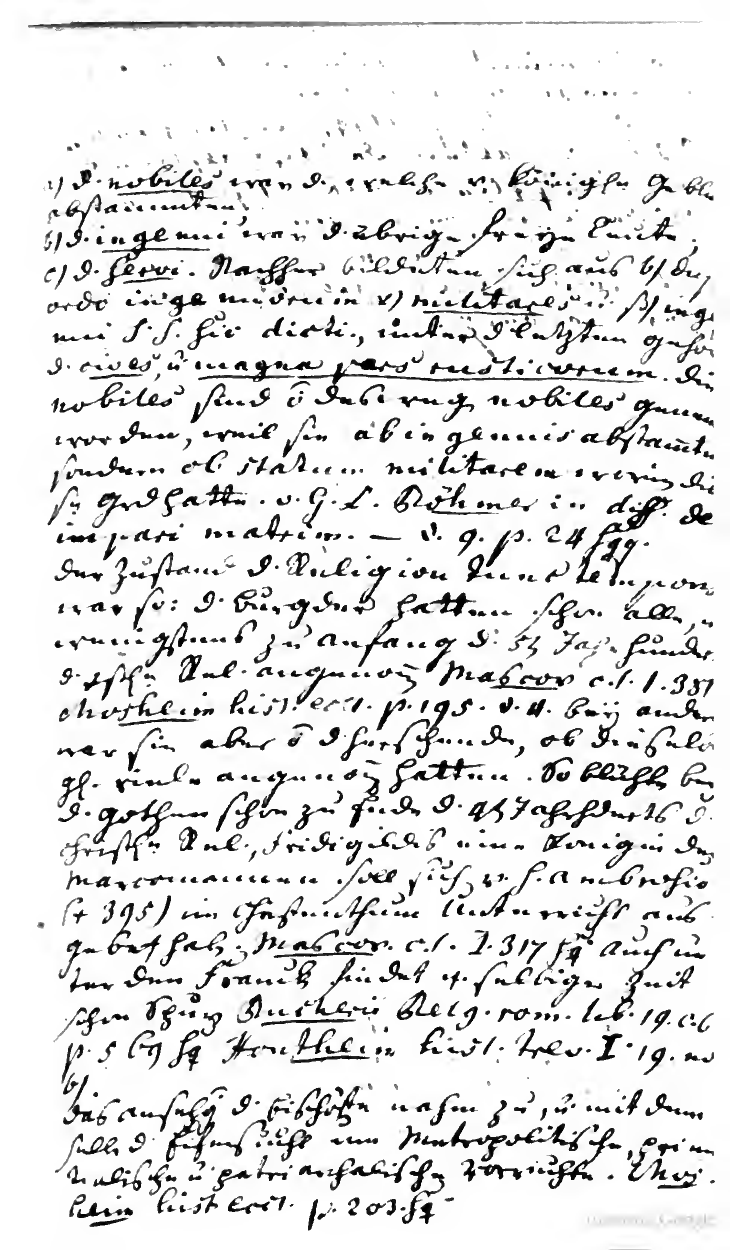 a) d. nobiles war d. welche v. königln Geblü
abstammten
b) d. ingenui war d. übrige freye Leute,
c) d. servi. Nachher bildeten sich aus b) der
ordo ingenuorum α) militares u. β) inge
nui s. s. sic dicti, unter d. letzten gehör
d. cives, u. magna pars rusticorum. die
nobiles sind õ desweg nobiles genen
worden, weil sie ab ingenuis abstam̄te
sondern ob statum militarem worin die
sie hatte. v. G. L. Böhmer in diss. de
impari matrim. — §. 9. p. 24 sqq.
der Zustand d. Religion tunc tempor
war so: d. burgder hatten schon alle,
wenigstens zu anfang d. 5t Jahrhunder
d. Rel. angenom̄ Mascov c. l. 1. 381
Mosheim hist. eccl. p. 195. §. 4. bey ander
war sie aber õ d herschende, ob dieselb
gl. viele angenom̄ hatten. So blühte bey
d. gothen schon zu Ende d. 4t Jahrhderts d.
christln Rel., Fridigildis eine Konigin der
Marcomannen soll sich v. h. Ambrosio
(+ 395) im Christenthum Unterricht aus
gebet hab. Mascov. c. l. I. 317 sq auch un
ter den Franck findet m. selbiger Zeit
schon Spur Bucherii Belg. rom. lib. 19. c. 6
p. 569 sq Hontheim hist. Trev. I. 19. no
b)
das ansehn d. bischöffe nahm zu, u. mit dem
selb d. Eifersucht um Metropolitische, prim
tialische u. patriarchalische Vorrechte. Mos
heim hist eccl. p. 203. sq